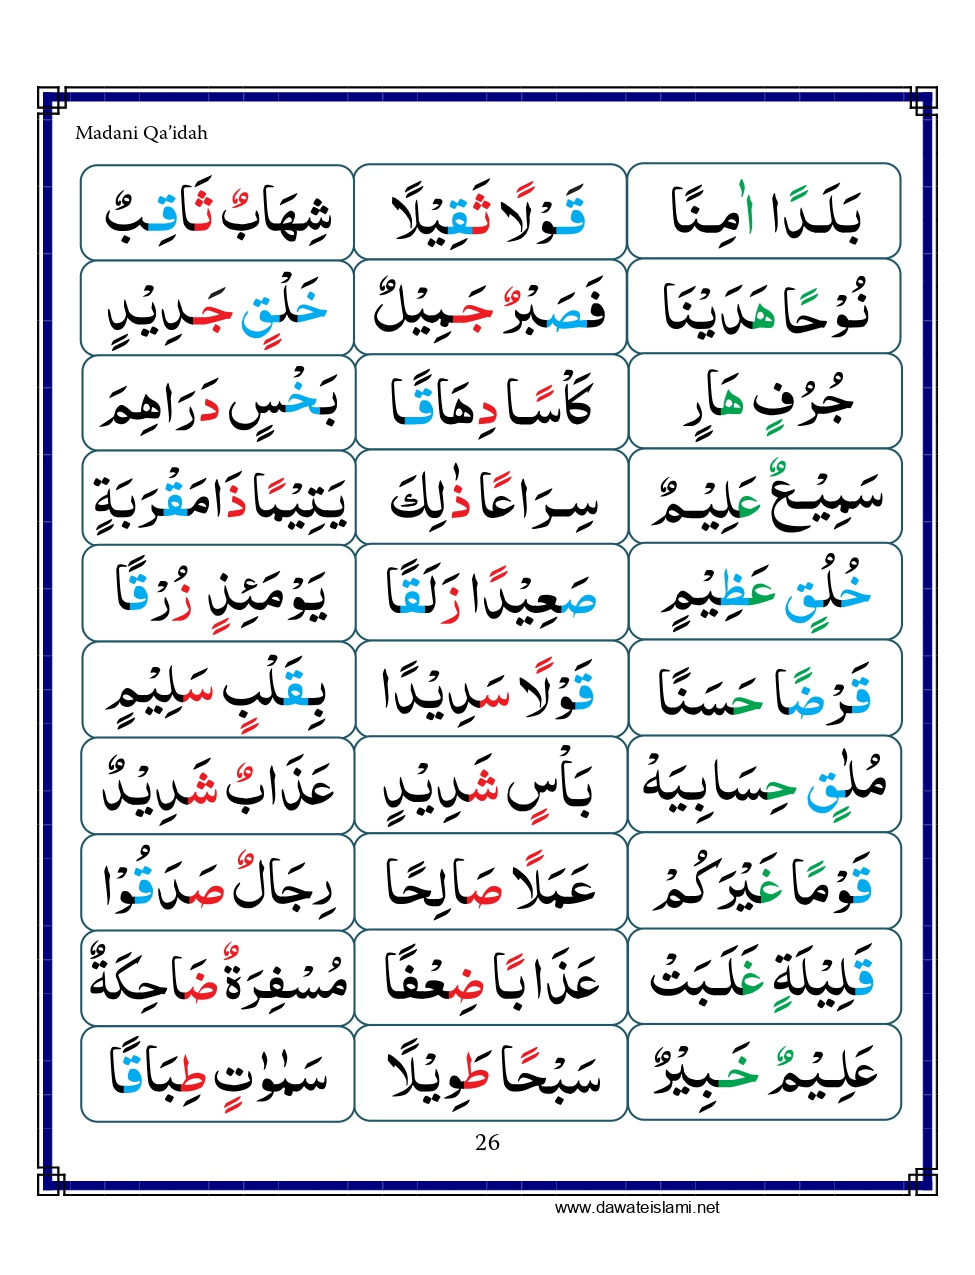 Madani Qa'idah
بَلَدًا اٰمِنًا قَوْلًا ثَقِيْلًا شِهَابٌ ثَاقِبٌ
نُوْحًا هَدَيْنَا فَصَبْرٌ جَمِيْلٌ خَلْقٍ جَدِيْدٍ
جُرُفٍ هَارٍ كَاْسًا دِهَاقًا بَخْسٍ دَرَاهِمَ
سَمِيْعٌ عَلِيْمٌ سِرَاعًا ذٰلِكَ يَتِيْمًا ذَا مَقْرَبَةٍ
خُلُقٍ عَظِيْمٍ صَعِيْدًا زَلَقًا يَوْمَئِذٍ زُرْقًا
قَرْضًا حَسَنًا قَوْلًا سَدِيْدًا بِقَلْبٍ سَلِيْمٍ
مُلٰقٍ حِسَابِيَهْ بَاْسٍ شَدِيْدٍ عَذَابٌ شَدِيْدٌ
قَوْمًا غَيْرَكُمْ عَمَلًا صَالِحًا رِجَالٌ صَدَقُوْا
قَلِيْلَةٍ غَلَبَتْ عَذَابًا ضِعْفًا مُسْفِرَةٌ ضَاحِكَةٌ
عَلِيْمٌ خَبِيْرٌ سَبْحًا طَوِيْلًا سَمٰوٰتٍ طِبَاقًا
26
www.dawateislami.net